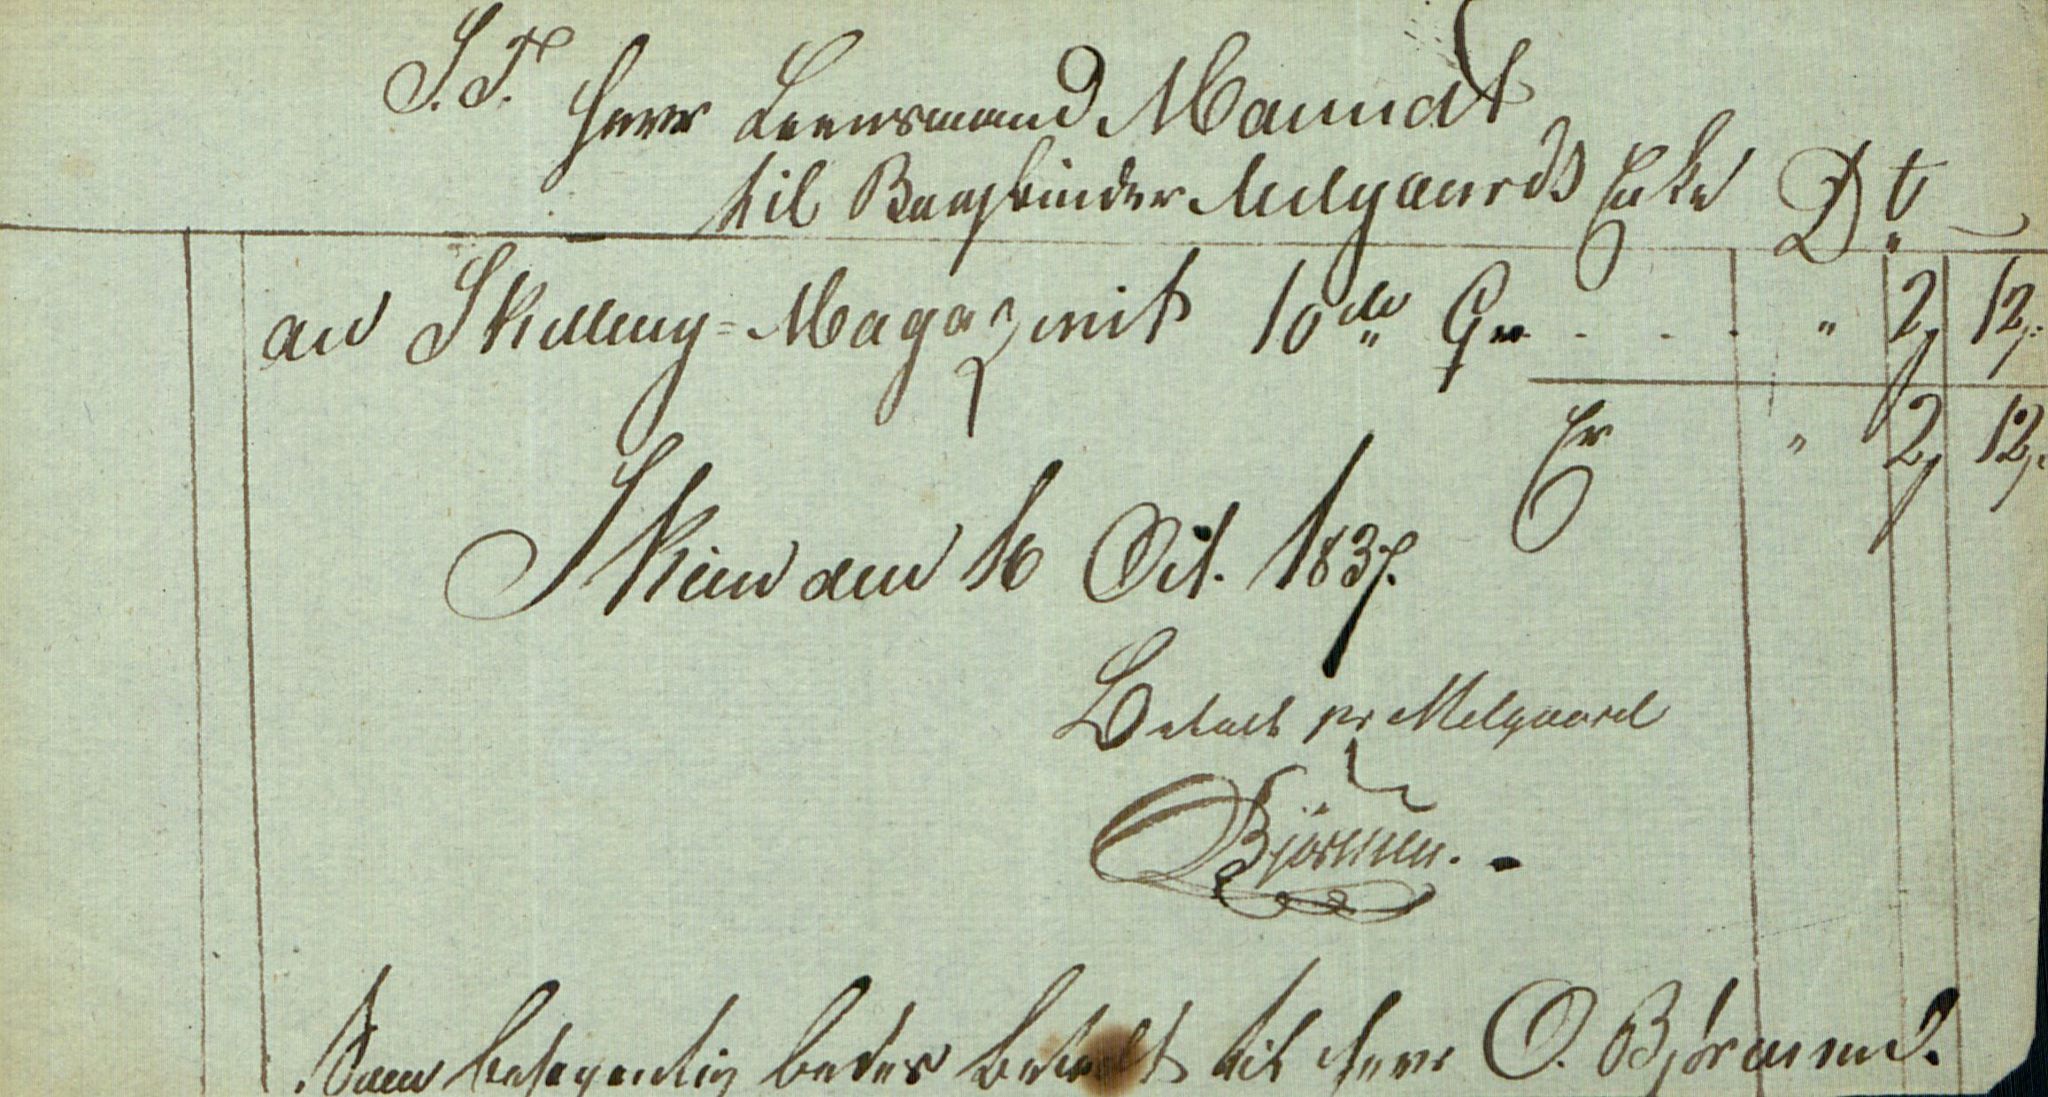 S. T.
Herr Leensmand Maundt
til Bogbinder Melgaards Enke Dt
an Skilling=Magazinit 10de Qr . . . " 2, 12,
Er " 2, 12,
Skien den 16 Oct. 1837.
Betalt pr Melgaard
Bjørnsen.
Som behagentlig bedes betalt til Herr O. Bjørnsen.